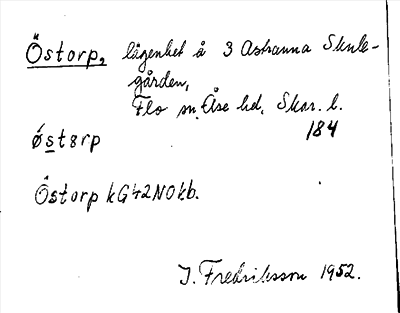 Östorp, lägenhet å 3 Astranna Skule-
gården,
Flo sn. Åse hd. Skar. l.
184
östɜrp
Östorp kG42NOkb.
J. Fredriksson 1952.